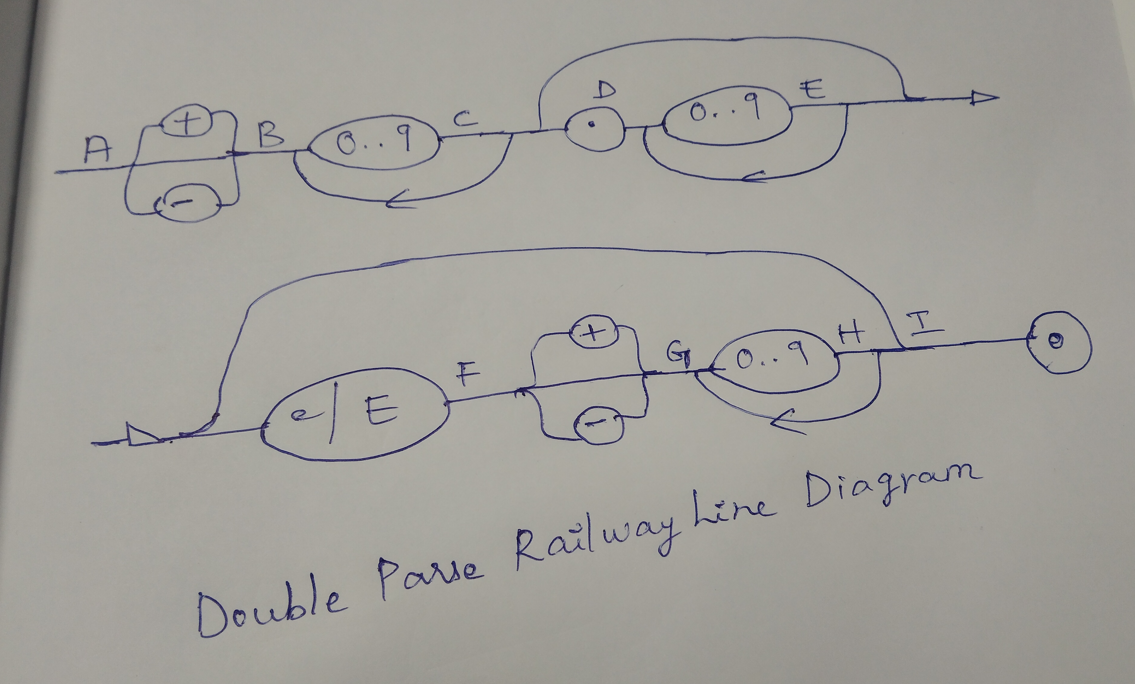 + D E
A B 0..9 C . 0..9
-
+ H I
F G 0..9
e/E -
Double Parse Railway Line Diagram